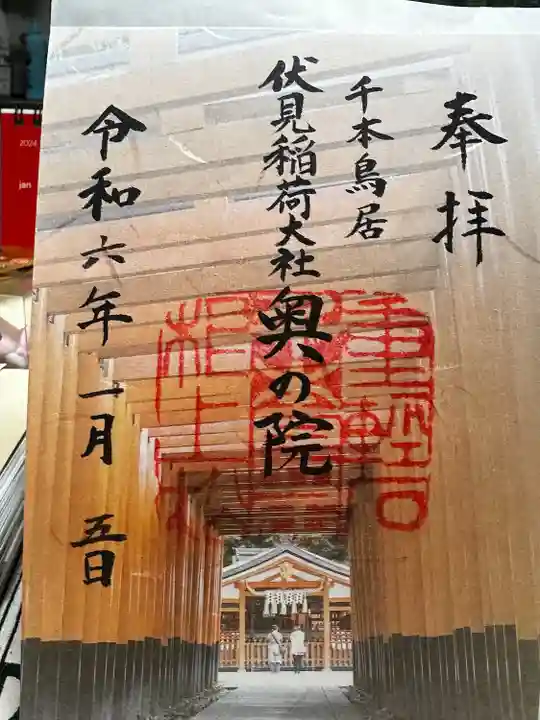 奉拝
千本鳥居
伏見稲荷大社 奥の院
令和六年一月五日
2024
jan